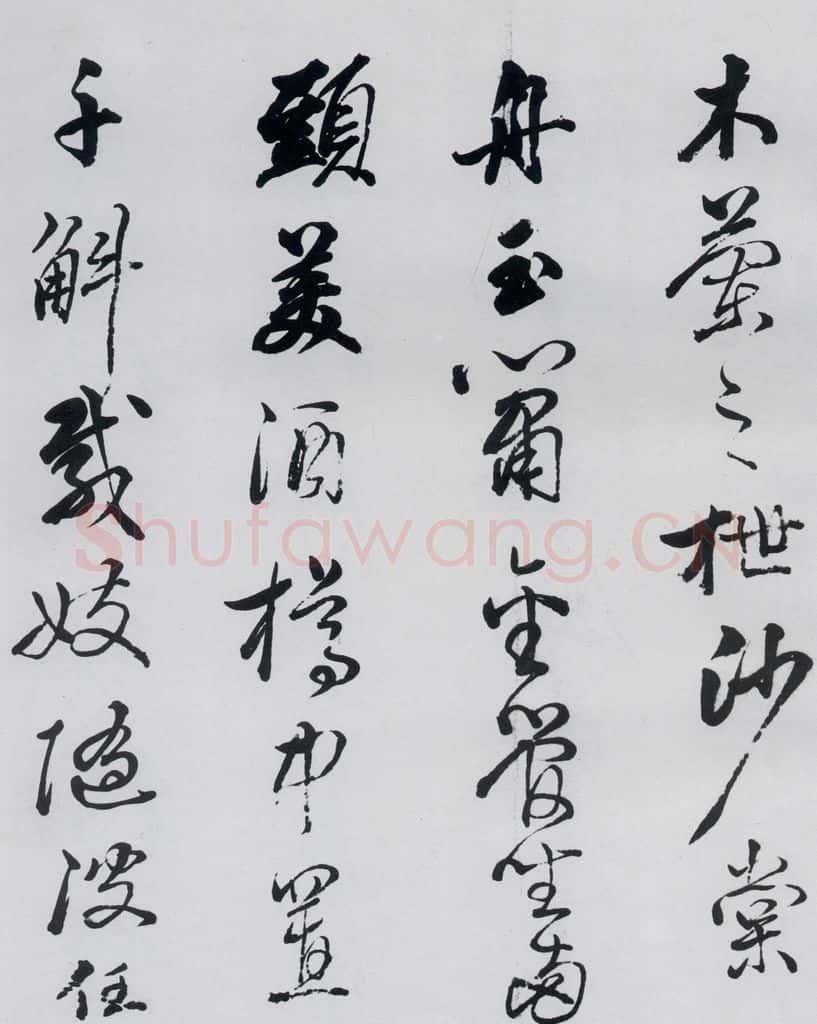 木蘭之枻沙棠
舟玉簫金管坐兩
頭美酒樽中置
千斛載妓隨波任
Shufawang.CN